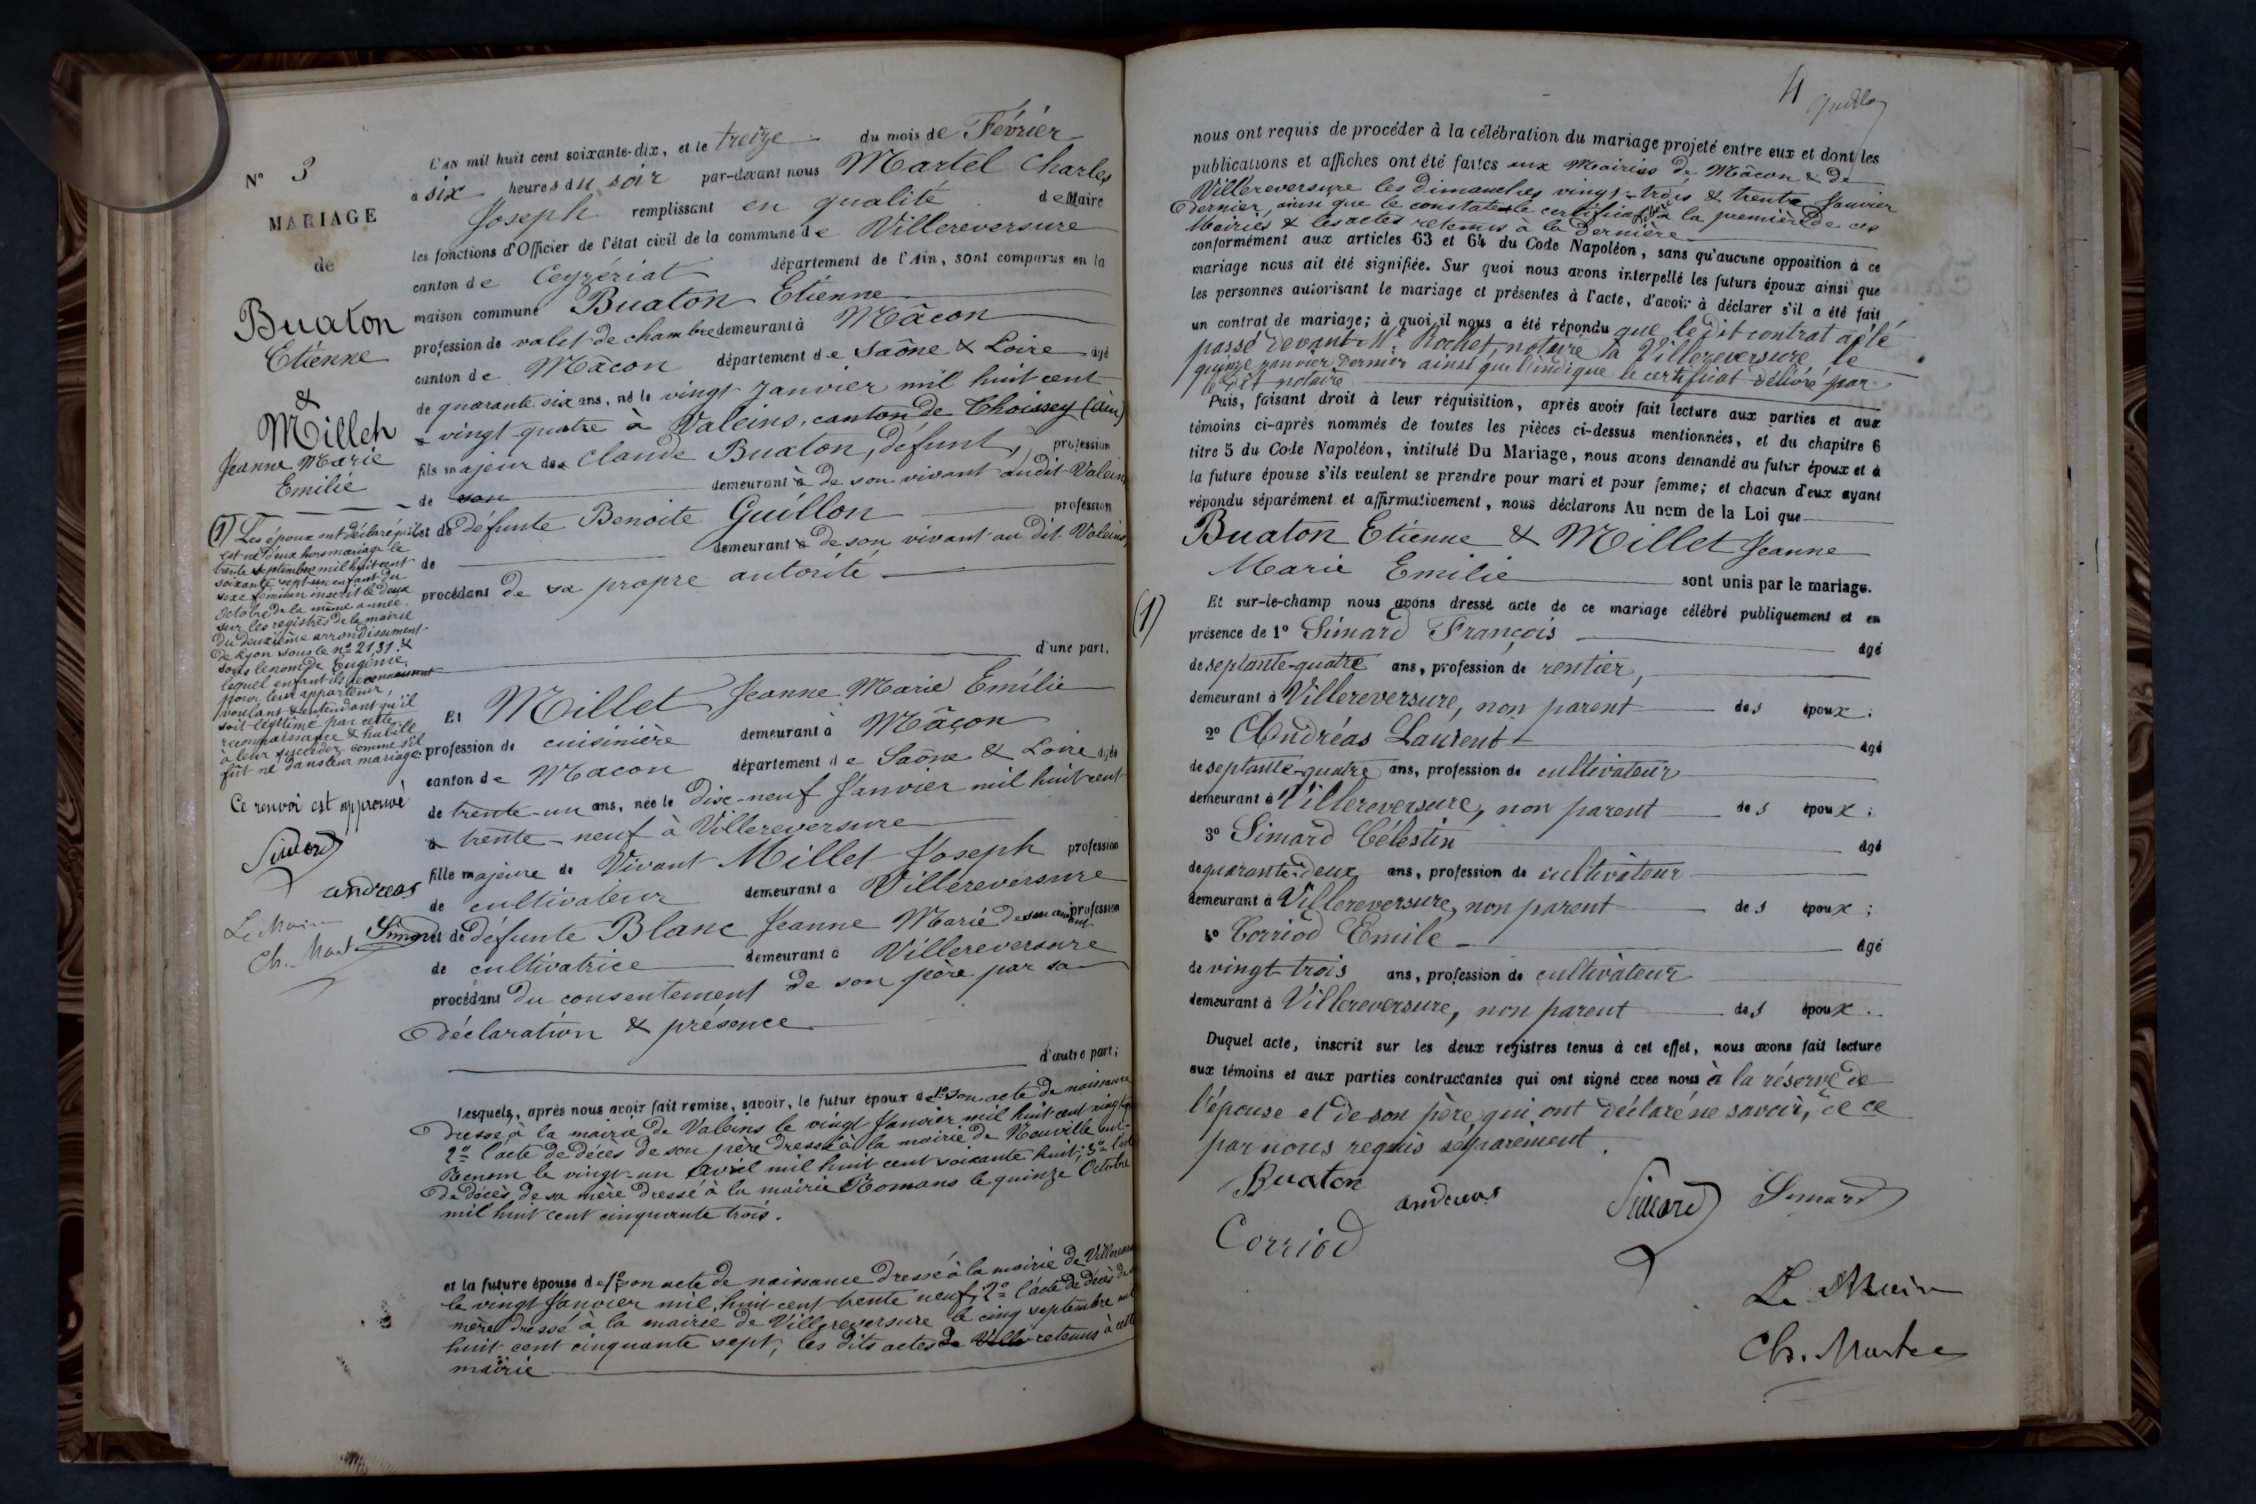 N° 3
MARIAGE
de
Buaton
Etienne
&
Millet
Jeanne Marie
Emilie
(1) Les époux ont déclaré qu'il
est né d'eux hors mariage le
trente septembre mil huit cent
soixante sept un enfant du
sexe féminin inscrit le deux
Octobre de la même année
sur les registres de la mairie
du deuxième arrondissement
de Lyon sous le n° 2131 &
sous le nom de Eugénie,
lequel enfant ils reconnaissent
pour leur appartenir,
voulant & entendant qu'il
soit légitimé par cette
reconnaissance & habile
à leur succéder comme s'il
fût né dans leur mariage.
Ce renvoi est approuvé
Simard
andreas
Le Maire
Simard
Ch. Mart
L'AN mil huit cent soixante-dix, et le treize du mois de Février
a six heures du soir par-devant nous Martel Charles
Joseph remplissant en qualité de Maire
les fonctions d'Officier de l'état civil de la commune de Villereversure
canton de Ceyzériat département de l'Ain, sont comparus en la
maison commune Buaton Etienne
profession de valet de chambre demeurant à Mâcon
canton de Mâcon département de Saône & Loire âgé
de quarante six ans, né le vingt Janvier mil huit cent
vingt-quatre à Valeins, canton de Thoissey (Ain)
fils majeur de Claude Buaton, défunt, profession
de demeurant à de son vivant audit Valeins
et de défunte Benoite Guillon profession
de demeurant à de son vivant au dit Valeins,
procédant de sa propre autorité
d'une part.
Et Millet Jeanne Marie Emélie
profession de cuisinière demeurant à Mâçon
canton de Macon département de Saône & Loire âgée
de trente-un ans, née le Dix-neuf Janvier mil huit cent
trente-neuf à Villereversure
fille majeure de Vivant Millet Joseph profession
de cultivateur demeurant a Villereversure
et de défunte Blanc Jeanne Marie de son vivant profession
de cultivatrice demeurant a Villereversure
procédant du consentement de son père par sa
déclaration & présence
d'autre part;
Lesquels, après nous avoir fait remise, savoir, le futur époux de 1° son acte de naissance
dressé à la mairie de Valeins le vingt Janvier mil huit cent vingt
2° l'acte de décès de son père dressé à la mairie de Neuville sur
Renom le vingt-un Avril mil huit cent soixante huit; 3° l'acte
de décès de sa mère dressé à la mairie Romans le quinze Octobre
mil huit cent cinquante trois.
et la future épouse de 1° son acte de naissance dressé à la mairie de Villerevers
le vingt Janvier mil huit cent trente neuf; 2° l'acte de décès de
mère dressé à la mairie de Villereversure le cinq septembre mil
huit cent cinquante sept; les dits actes de Ville retenus à cette
mairie
4
nous ont requis de procéder à la célébration du mariage projeté entre eux et dont les
publications et affiches ont été faites aux Mairies de Mâcon & de
Villereversure les dimanches vingt-trois & trente Janvier
dernier, ainsi que le constate le certificat de la première de ces
Mairies & les actes retenus à la dernière
conformément aux articles 63 et 64 du Code Napoléon, sans qu'aucune opposition à ce
mariage nous ait été signifiée. Sur quoi nous avons interpellé les futurs époux ainsi que
les personnes autorisant le mariage et présentes à l'acte, d'avoir à déclarer s'il a été fait
un contrat de mariage; à quoi il nous a été répondu que le dit contrat a été
passé devant Me Rochet, notaire à Villereversure le
quinze Janvier dernier ainsi que l'indique le certificat délivré par
le dit notaire
Puis, faisant droit à leur réquisition, après avoir fait lecture aux parties et aux
témoins ci-après nommés de toutes les pièces ci-dessus mentionnées, et du chapitre 6
titre 5 du Code Napoléon, intitulé Du Mariage, nous avons demandé au futur époux et à
la future épouse s'ils veulent se prendre pour mari et pour femme; et chacun d'eux ayant
répondu séparément et affirmativement, nous déclarons Au nom de la Loi que
Buaton Etienne & Millet Jeanne
Marie Emilie sont unis par le mariage.
(1) Et sur-le-champ nous avons dressé acte de ce mariage célébré publiquement et en
présence de 1° Simard François âgé
de septante-quatre ans, profession de rentier,
demeurant à Villereversure, non parent des époux;
2° Andréas Laurent âgé
de septante-quatre ans, profession de cultivateur
demeurant à Villereversure, non parent des époux;
3° Simard Célestin âgé
de quarante-deux ans, profession de cultivateur
demeurant à Villereversure, non parent des époux;
4° Corriod Emile âgé
de vingt-trois ans, profession de cultivateur
demeurant à Villereversure, non parent des époux.
Duquel acte, inscrit sur les deux registres tenus à cet effet, nous avons fait lecture
aux témoins et aux parties contractantes qui ont signé avec nous à la réserve de
l'épouse et de son père, qui ont déclaré ne savoir, de ce
par nous requis séparément.
Buaton andreas Simard Simard
Corriod
Le Maire
Ch. Martel